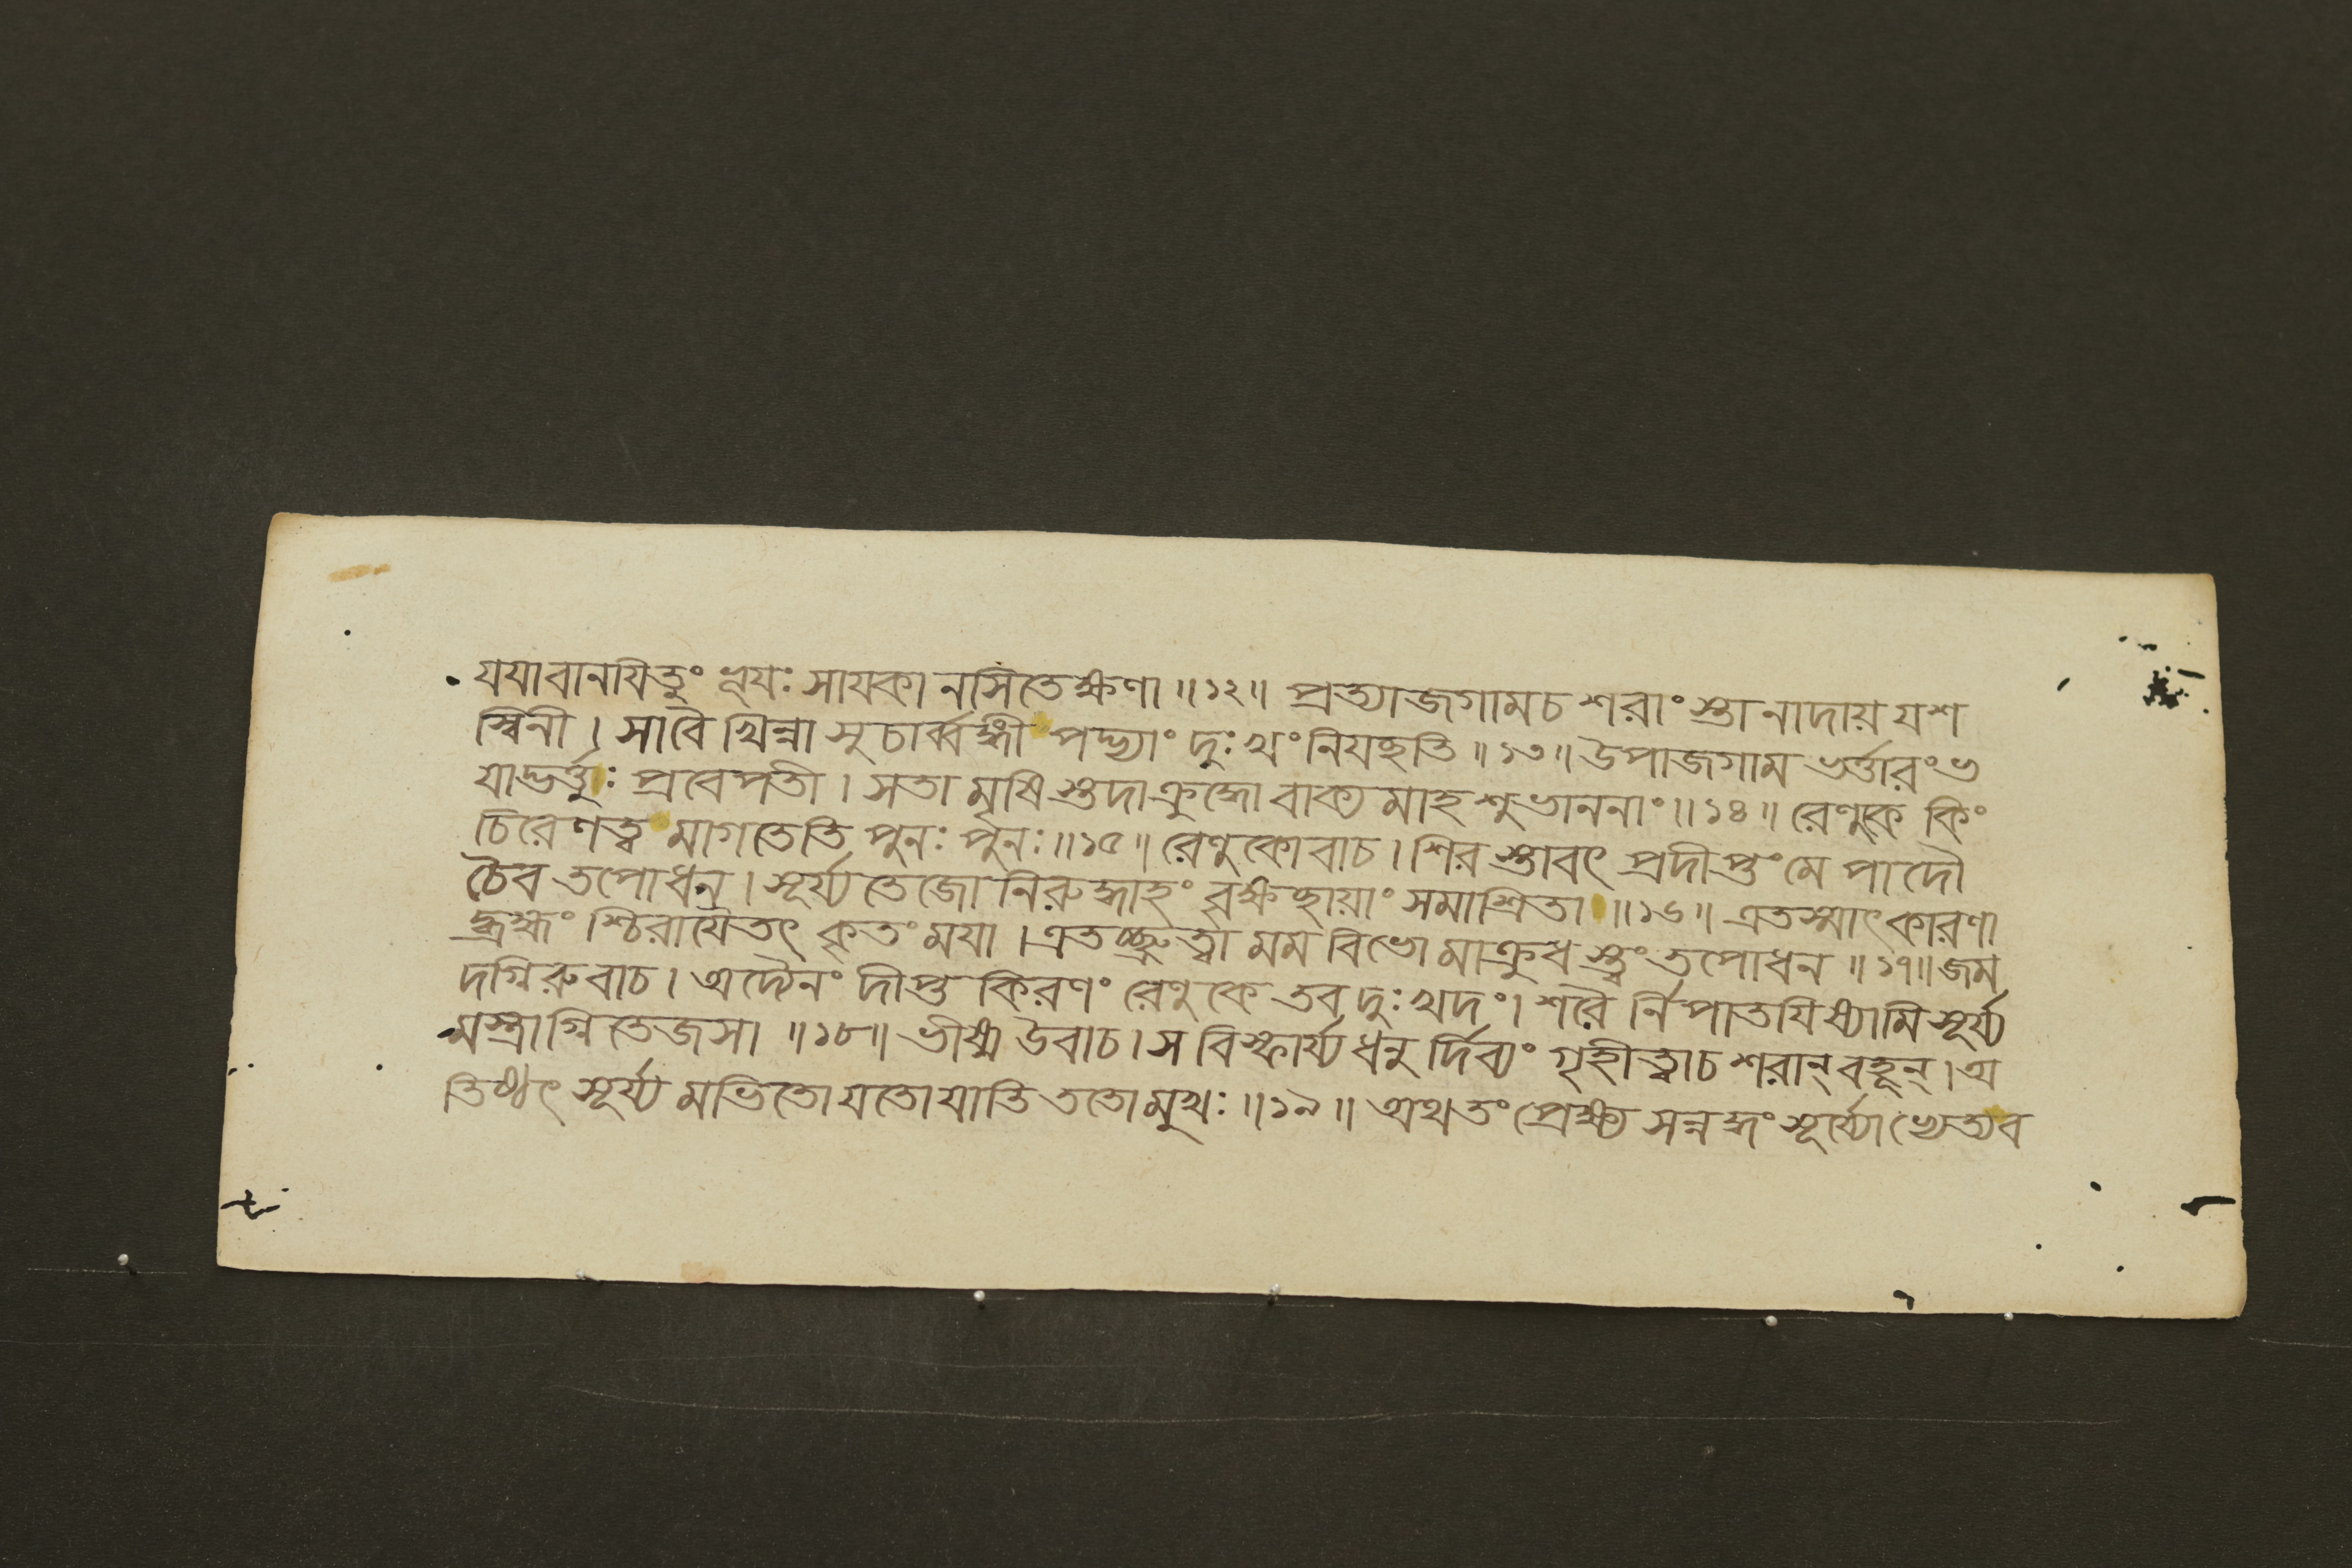 যযাবানযিতুং ভূযঃ সাযকা নসিতেক্ষণা ॥১২॥ প্রত্যাজগামচ শরাং স্তানাদায় যশ
স্বিনী । সাবৈ খিন্না সুচার্ব্বঙ্গী পদ্ভ্যাং দুঃখং নিযচ্ছতি ॥১৩॥ উপাজগাম ভর্ত্তারং ভ
যাদ্ভর্ত্তুঃ প্রবেপতী । সতা মৃষি স্তুদা ক্রুদ্ধো বাক্য মাহ শুভাননাং ॥১৪॥ রেণুকে কিং
চিরেণত্ব মাগতেতি পুনঃ পুনঃ ॥১৫॥ রেণুকোবাচ । শির স্তাবৎ প্রদীপ্তং মে পাদৌ
চৈব তপোধন । সূর্য্য তেজো নিরুদ্ধাহং বৃক্ষচ্ছায়াং সমাশ্রিতা ॥১৬॥ এতস্মাৎ কারণা
দ্ব্রহ্মং শ্চিরাযৈতৎ কৃতং মযা । এতচ্ছ্রুত্বা মম বিভো মাক্রুধ স্ত্বং তপোধন ॥১৭॥ জম
দগ্নিরুবাচ । অদ্যৈনং দীপ্ত কিরণং রেণুকে তব দুঃখদং । শরৈ র্নিপাতযিষ্যামি সূর্য্য
মস্ত্রাগ্নি তেজসা ॥১৮॥ ভীষ্ম উবাচ । স বিস্ফার্য্য ধনু র্দিব্যং গৃহীত্বাচ শরান্ বহূন্ । অ
তিষ্ঠৎ সূর্য্য মভিতো যতো যাতি ততো মুখঃ ॥১৯॥ অথ তং প্রেক্ষ্য সন্নদ্ধং সূর্য্যোভ্যেত্য ব